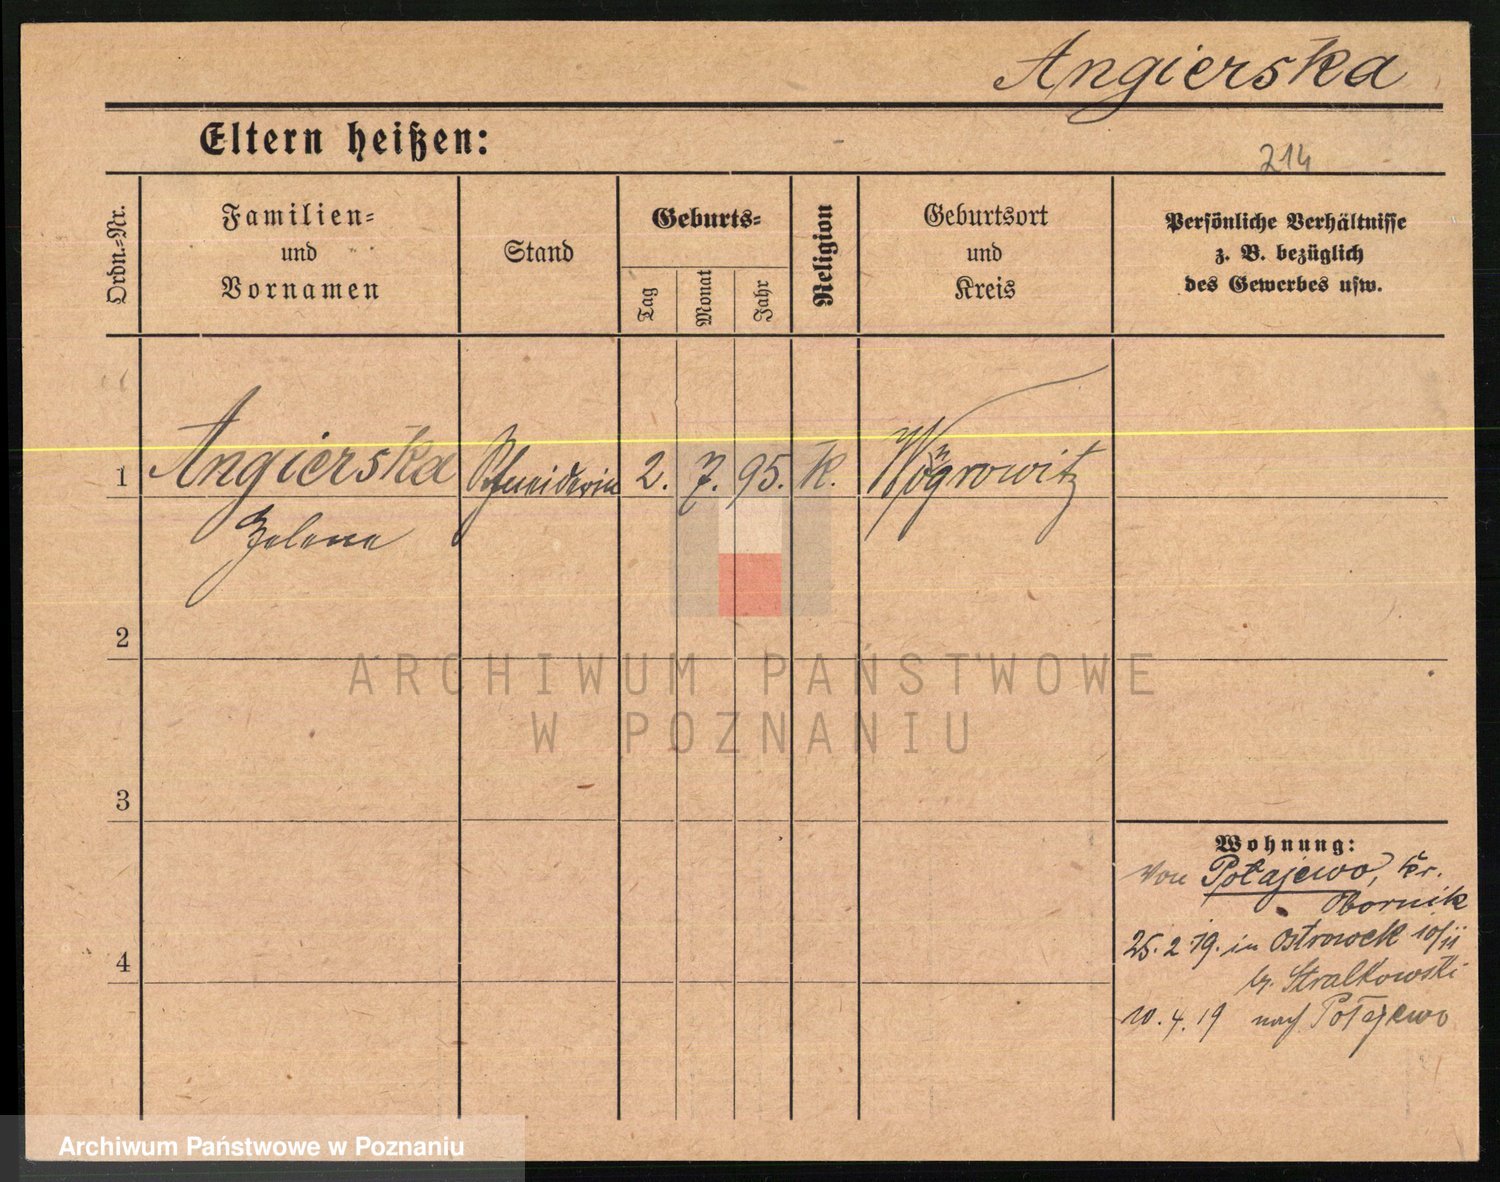 Angierska
Eltern heißen:
214
Ordn.-Nr.
Familien-
und
Vornamen
Stand
Geburts-
Tag
Monat
Jahr
Religion
Geburtsort
und
Kreis
Persönliche Verhältnisse
z. B. bezüglich
des Gewerbes usw.
1
Angierska
Helena
Schneiderin
2.
7.
95.
k.
Wongrowitz
2
3
4
Wohnung:
Von Połajewo, Kr.
Obornik
25.2.19. in Ostrowek 10/11
b. Stralkowski
10.4.19 nach Połajewo
ARCHIWUM PAŃSTWOWE
W POZNANIU
Archiwum Państwowe w Poznaniu